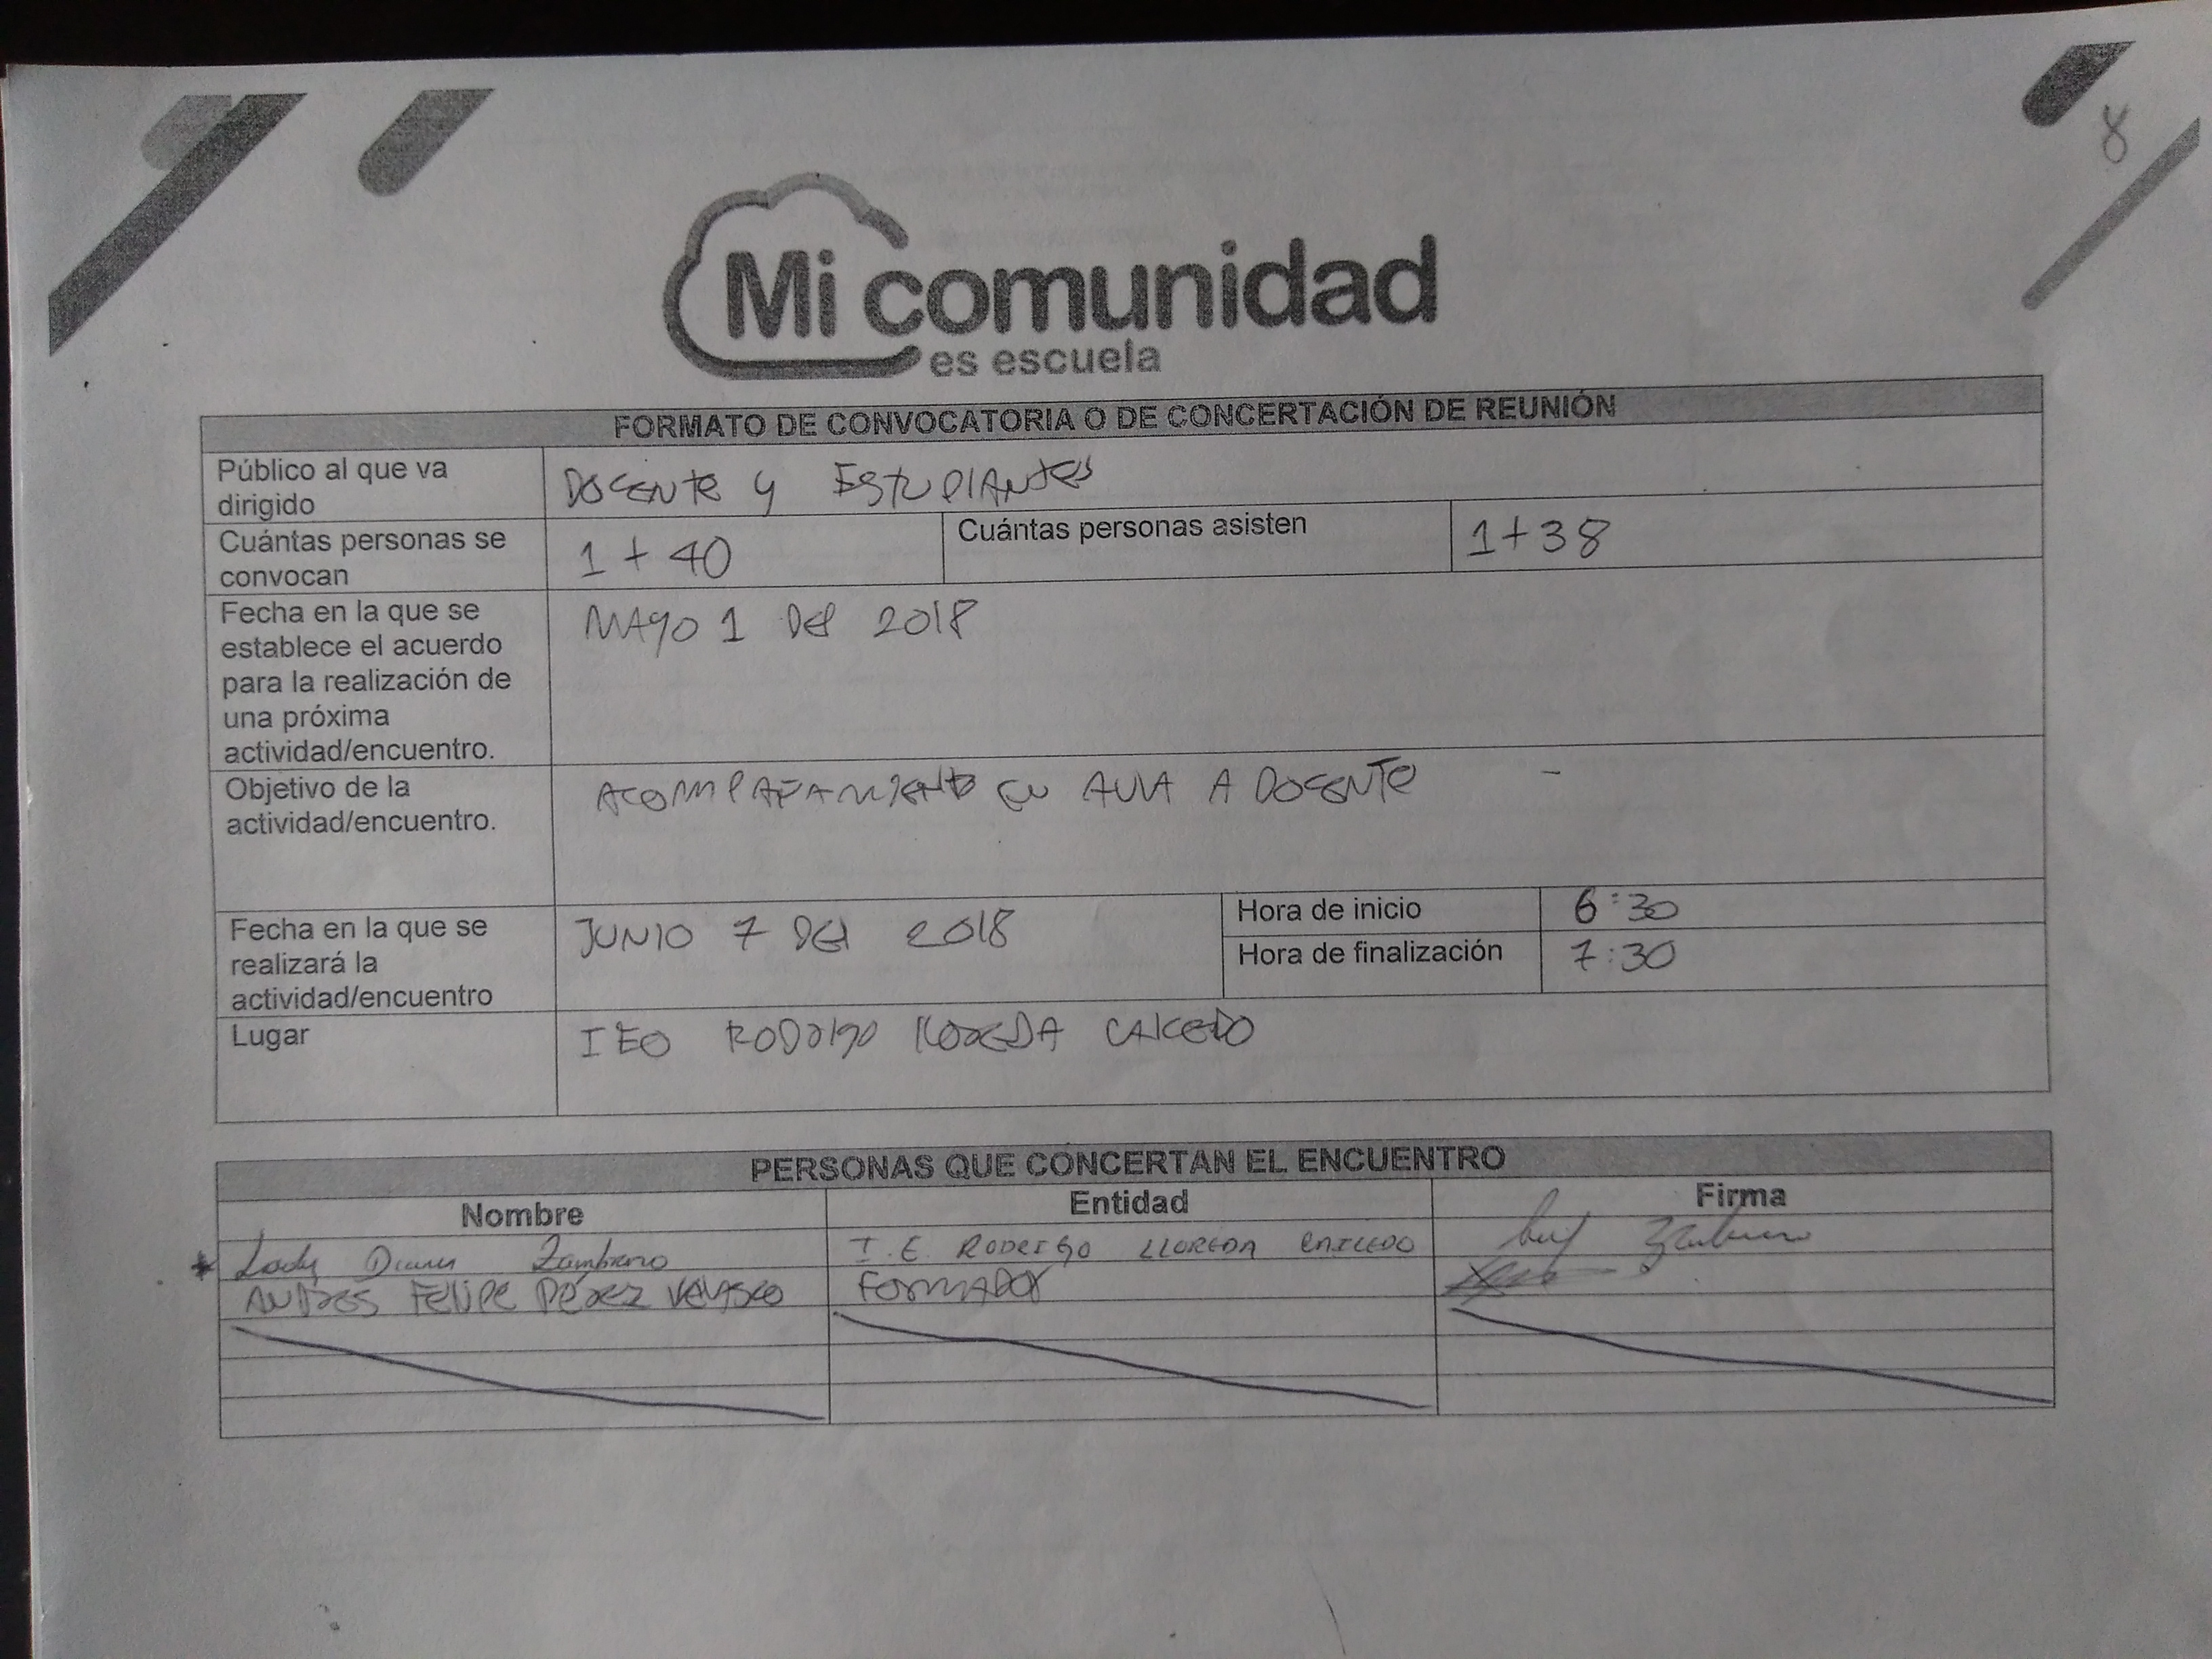 8
Mi comunidad
es escuela
FORMATO DE CONVOCATORIA O DE CONCERTACIÓN DE REUNIÓN
Público al que va
dirigido
DOCENTE Y ESTUDIANTES
Cuántas personas se
convocan
1 + 40
Cuántas personas asisten
1+38
Fecha en la que se
establece el acuerdo
para la realización de
una próxima
actividad/encuentro.
MAYO 1 DEL 2018
Objetivo de la
actividad/encuentro.
ACOMPAÑAMIENTO EN AULA A DOCENTE -
Fecha en la que se
realizará la
actividad/encuentro
JUNIO 7 DEL 2018
Hora de inicio
6:30
Hora de finalización
7:30
Lugar
IEO RODRIGO LLOREDA CAICEDO
PERSONAS QUE CONCERTAN EL ENCUENTRO
Nombre Entidad Firma
Lady Diana Zambrano I.E RODRIGO LLOREDA CAICEDO
ANDRES FELIPE PÉREZ VELASCO FORMADOR